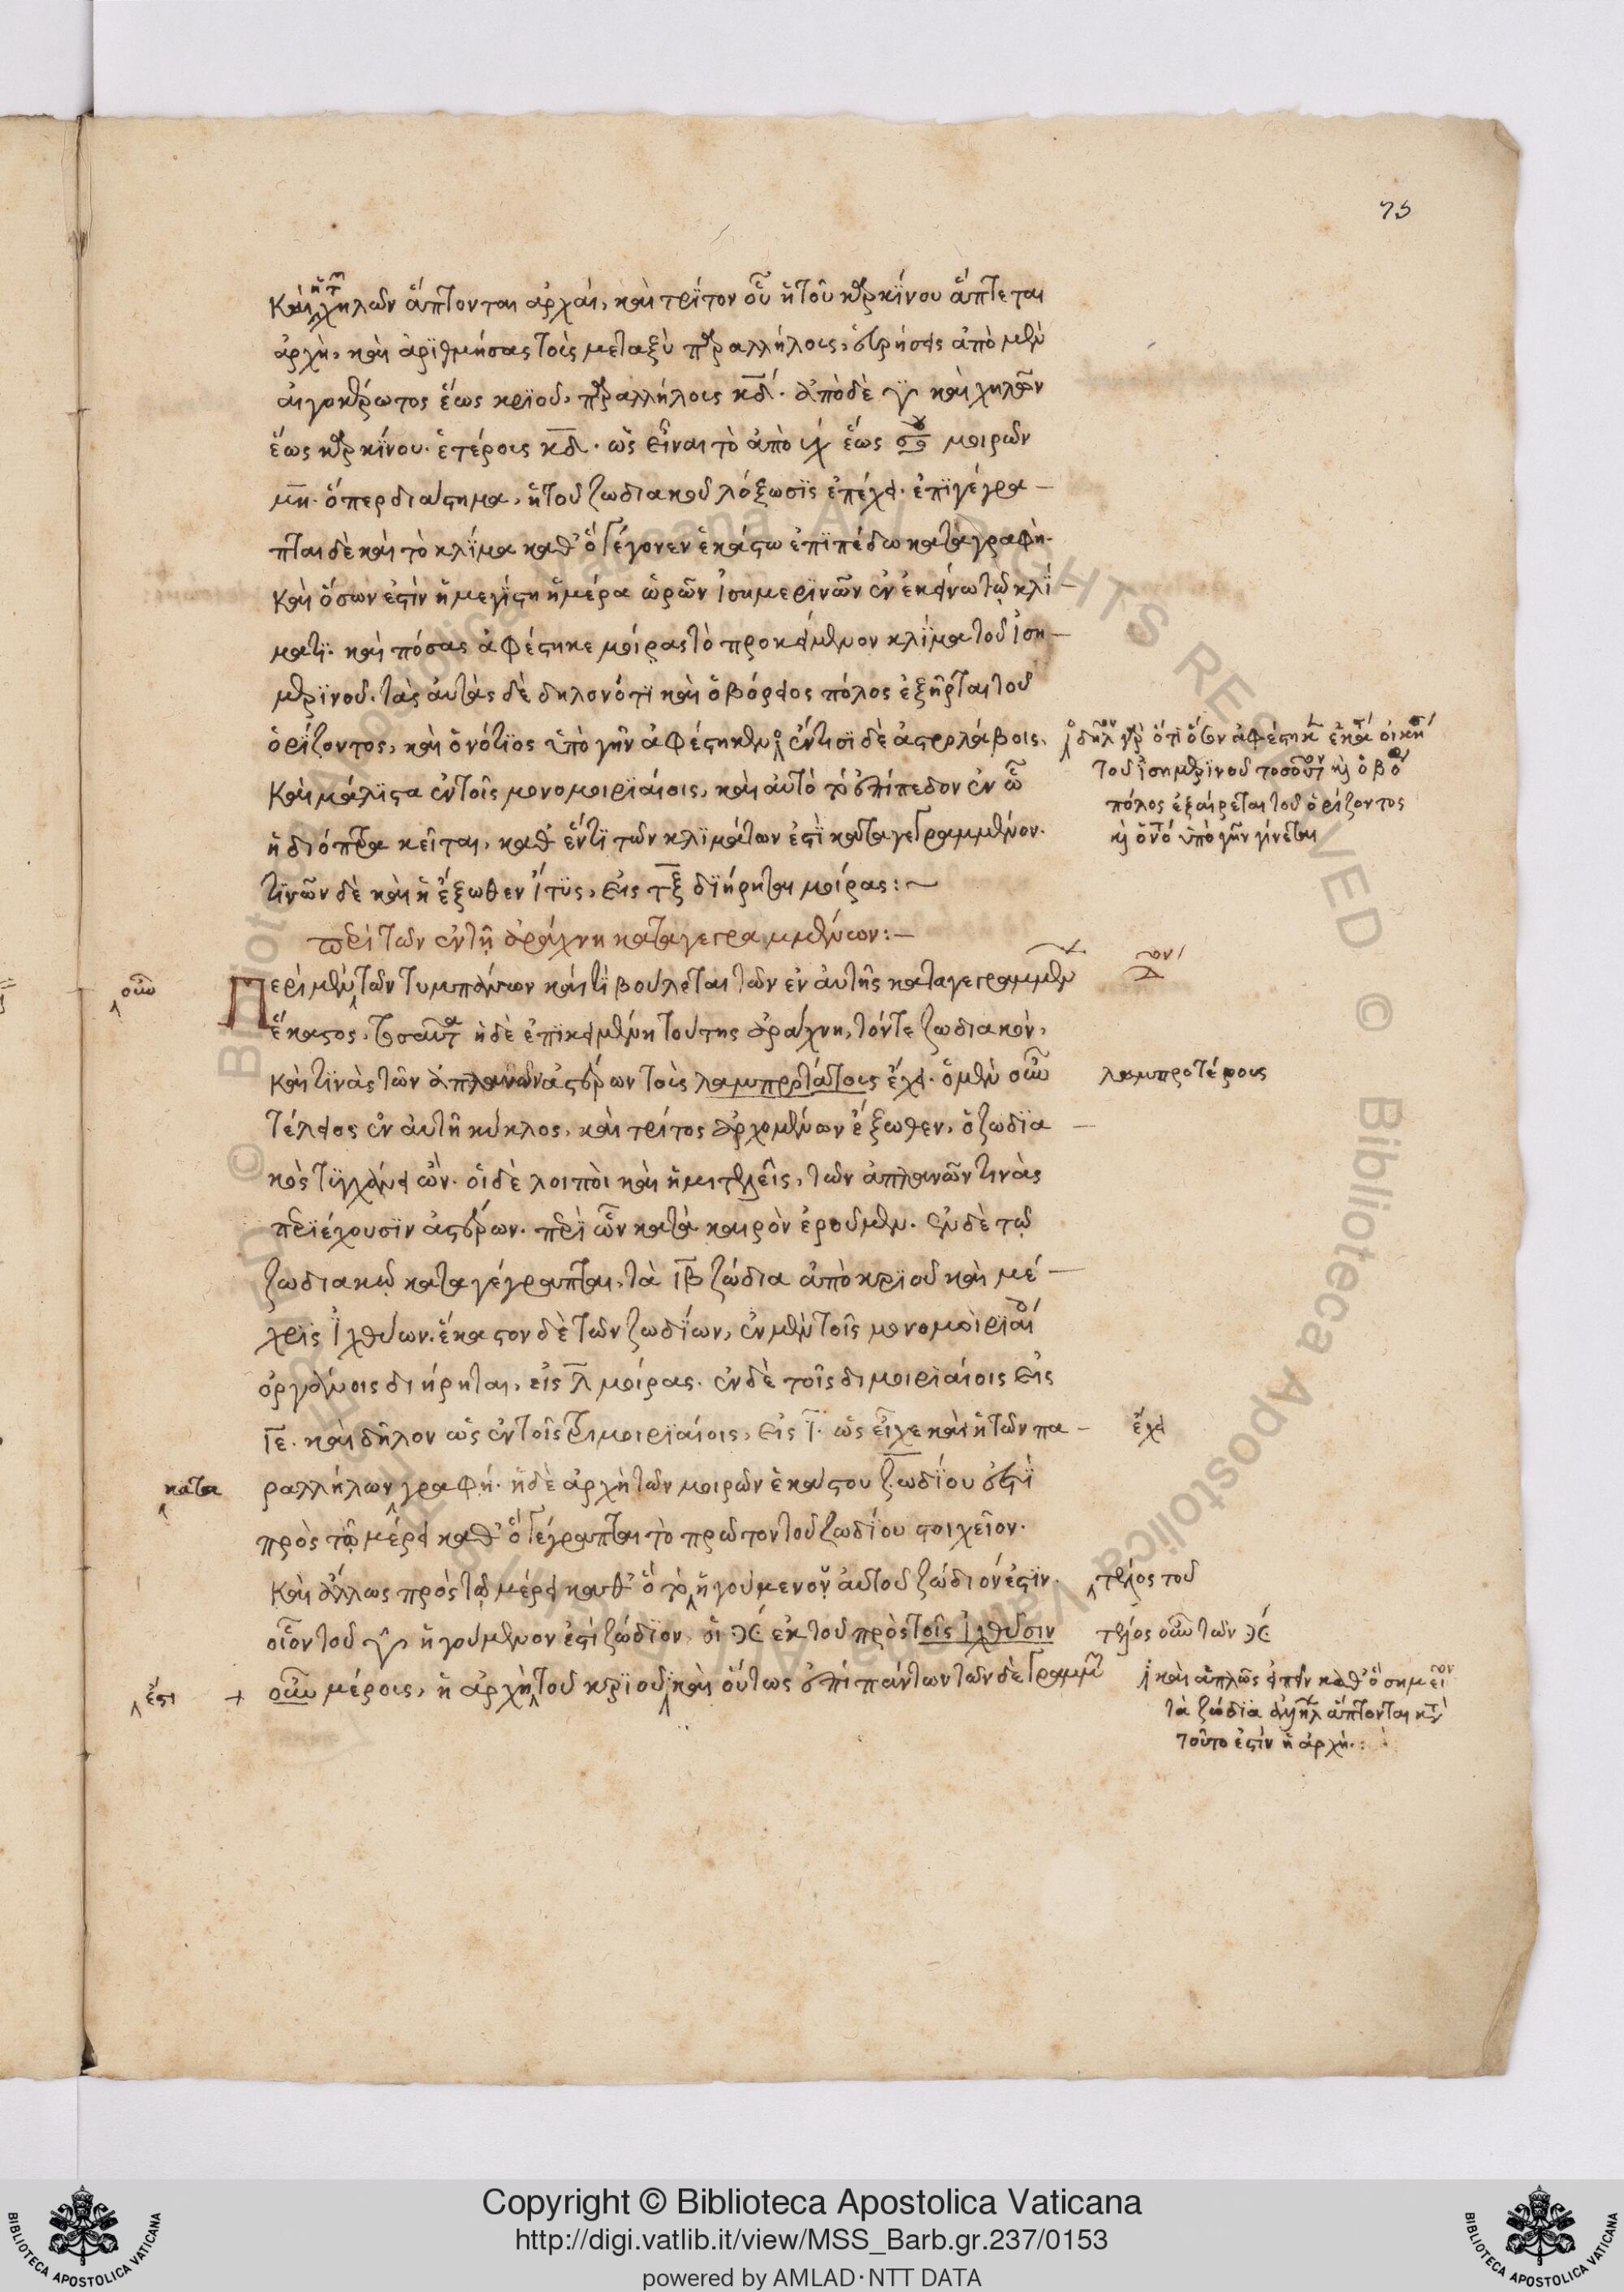 75
καὶ χηλῶν ἅπτονται ἀρχαί, καὶ τρίτον οὗ ἡ τοῦ καρκίνου ἅπτεται
ἀρχή, καὶ ἀριθμήσας τοὺς μεταξὺ παραλλήλους, εὑρήσεις ἀπὸ μὲν
αἰγοκέρωτος ἕως κριοῦ, παραλλήλους κδ. ἀπὸ δὲ ♈ καὶ χηλῶν
ἕως καρκίνου. ἑτέρους κδ. ὡς εἶναι τὸ ἀπὸ ἕως μοιρῶν
μη. ὅπερ διάστημα, ἡ τοῦ ζωδιακοῦ λόξωσις ἐπέχει. ἐπιγέγρα-
πται δὲ καὶ τὸ κλίμα καθ' ὃ γέγονεν ἑκάστω ἐπιπέδω καταγραφή.
καὶ ὅσων ἐστὶν ἡ μεγίστη ἡμέρα ὡρῶν ἰσημερινῶν ἐν ἐκείνω τῷ κλί-
ματι. καὶ πόσας ἀφέστηκε μοίρας τὸ προκείμενον κλίμα τοῦ ἰση-
μερινοῦ. τὰς αὐτὰς δὲ δηλονότι καὶ ὁ βόρειος πόλος ἐξῆρται τοῦ
ὁρίζοντος, καὶ ὁ νότιος ὑπὸ γῆν ἀφέστηκεν ἔν τισι δὲ ἀστρολάβοις.
δῆλον γὰρ ὅτι ὅταν ἀφέστηκε
τοῦ ἰσημερινοῦ τοσοῦτον καὶ ὁ βό
πόλος ἐξαίρεται τοῦ ὁρίζοντος
καὶ ὁ νό ὑπὸ γῆν γίνεται
καὶ μάλιστα ἐν τοῖς μονομοιριαίοις, καὶ αὐτὸ τὸ ἐπίπεδον ἐν ᾧ
ἡ διόπτρα κεῖται, καθ' ἕν τι τῶν κλιμάτων ἐστὶ καταγεγραμμένον.
τινῶν δὲ καὶ ἡ ἔξωθεν ἴτυς, εἰς τξ διήρηται μοίρας:~
περὶ τῶν ἐν τῇ ἀράχνη καταγεγραμμένων:-
οὖν
Περὶ μὲν τῶν τυμπάνων καὶ τί βούλεται τῶν ἐν αὐτῆς καταγεγραμμένων
ἕκαστος, τοσαῦτα ἡ δὲ ἐπικειμένη τούτης ἀράχνη, τόν τε ζωδιακὸν,
καὶ τινὰς τῶν ἀπλανῶν ἀστέρων τοὺς λαμπροτάτους ἔχει. ὁ μὲν οὖν
λαμπροτέρους
τέλειος ἐν αὐτῆ κύκλος, καὶ τρίτος ἀρχομένων ἔξωθεν, ὁ ζωδια-
κὸς τυγχάνει ὤν. οἱ δὲ λοιποὶ καὶ ἡμιτελεῖς, τῶν ἀπλανῶν τινὰς
περιέχουσιν ἀστέρων. περὶ ὧν κατὰ καιρὸν ἐροῦμεν. ἐν δὲ τῷ
ζωδιακῷ καταγέγραπται, τὰ ιβ ζώδια ἀπὸ κριοῦ καὶ μέ-
χρις ἰχθύων. ἕκαστον δὲ τῶν ζωδίων, ἐν μὲν τοῖς μονομοιριαί
ὀργάνοις διήρηται, εἰς λ μοίρας. ἐν δὲ τοῖς διμοιριαίοις εἰς
ιε. καὶ δῆλον ὡς ἐν τοῖς τριμοιριαίοις, εἰς ι. ὡς εἶχε καὶ ἡ τῶν πα-
ἔχει
κατα
ραλλήλων γραφή. ἡ δὲ ἀρχὴ τῶν μοιρῶν ἑκάστου ζωδίου ἐστὶ
πρὸς τῷ μέρει καθ' ὃ γέγραπται τὸ πρῶτον τοῦ ζωδίου στοιχεῖον.
καὶ ἄλλως πρὸς τῷ μέρει καθ' ὃ τὸ ἡγούμενον αὐτοῦ ζώδιόν ἐστιν.
τέλος τοῦ
οἷον τοῦ ♈ ἡγούμενον ἐστὶ ζώδιον, οἱ ♓ ἐκ τοῦ πρὸς τοῖς ἰχθύσιν
τέλος οὖν τῶν ♓
ἐστι
+ οὖν μέρους, ἡ ἀρχὴ τοῦ κριοῦ καὶ οὕτως ἐπὶ πάντων τῶν δὲ γραμμῶν
καὶ ἁπλῶς εἰπεῖν καθ' ὃ σημεῖον
τὰ ζώδια ἀλλήλ ἅπτονται κατὰ
τοῦτο ἐστὶν ἡ ἀρχή.:
Copyright © Biblioteca Apostolica Vaticana
http://digi.vatlib.it/view/MSS_Barb.gr.237/0153
powered by AMLAD·NTT DATA
BIBLIOTECA APOSTOLICA VATICANA
BIBLIOTECA APOSTOLICA VATICANA